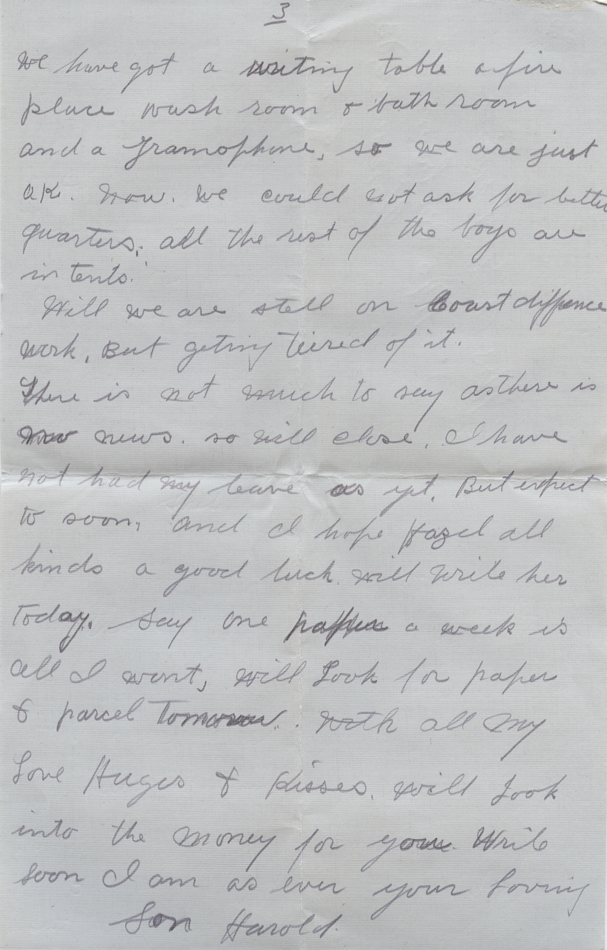 3
We have got a writing table a fire
place wash room & bath room
and a Gramophone, so we are just
OK. Now. We could not ask for better
quarters, all the rest of the boys are
in tents.
Well we are still on Coast diffence
work, But geting tiered of it.
There is not much to say as there is
now news. so will close, I have
not had my leave as yet, But expect
to soon, and I hope Hazel all
kinds a good luck. will write her
Today. Say one paper a week is
all I want, will Look for paper
& parcel Tomorow. With all my
Love Huges & Kisses. will Look
into the money for you Write
soon I am as ever your Loving
Son Harold.